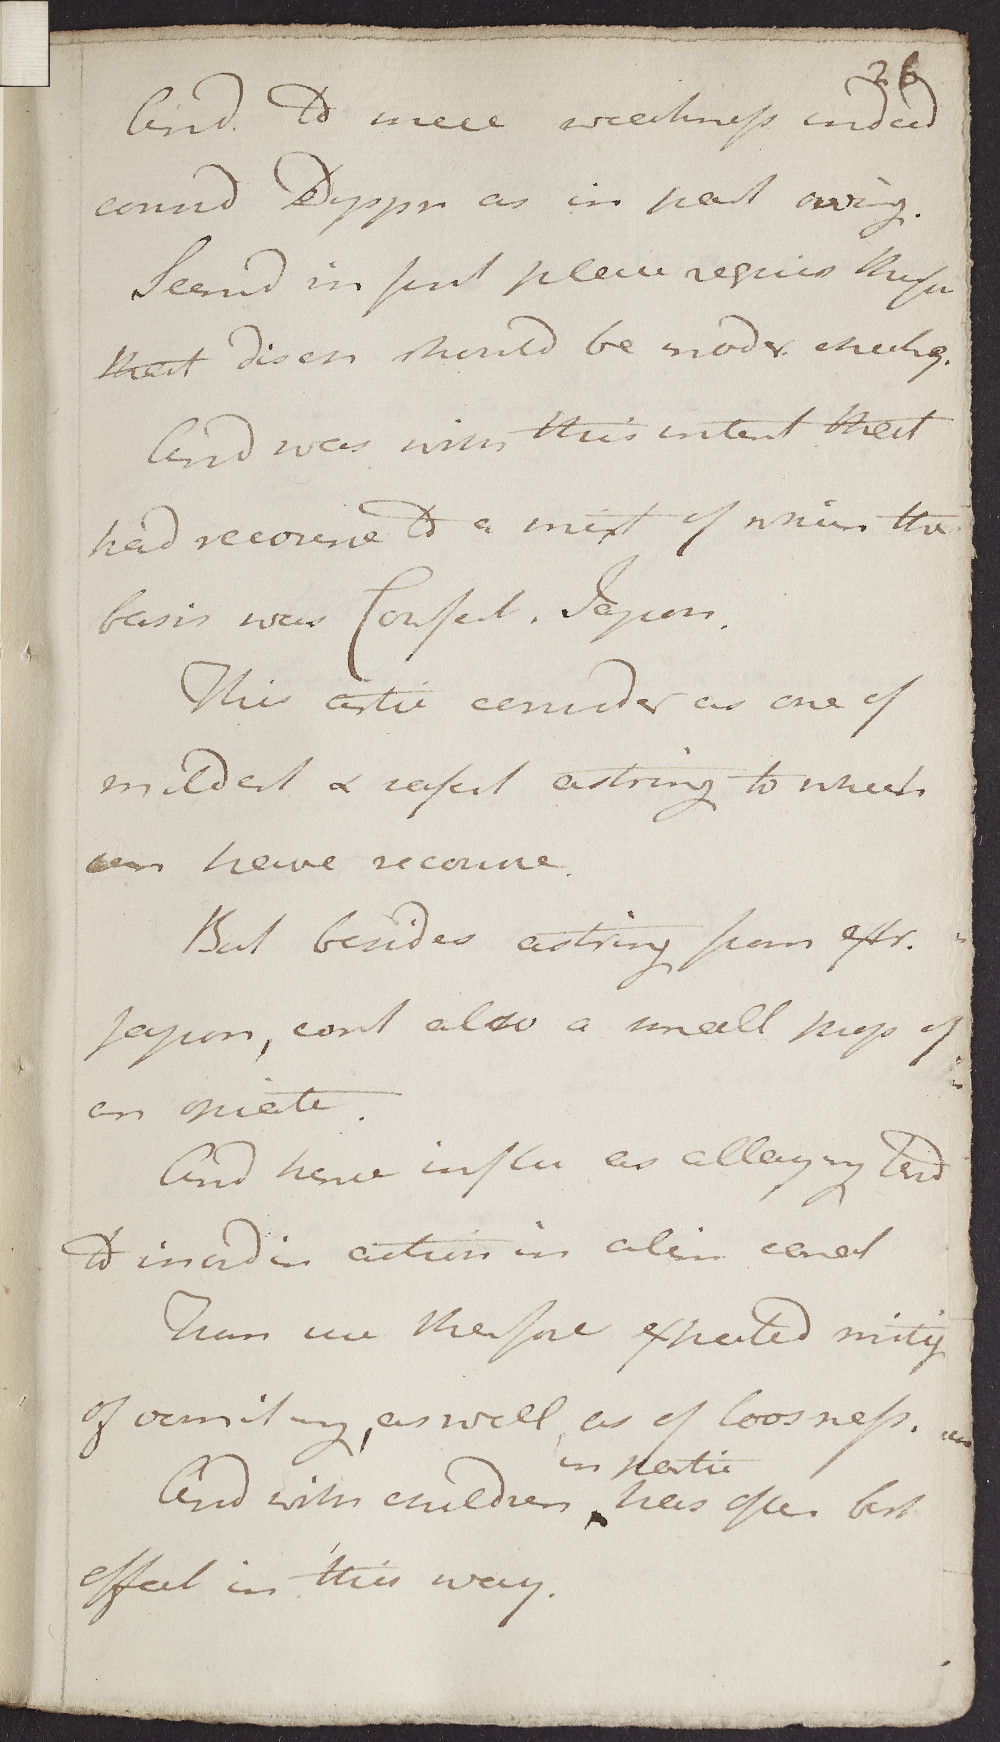 26
And. to mere weakness indeed
consid Dyspn as in part owing.
Seemd in first place requis therefor
that disch should be moder. checkg.
And was with this intent that
had recourse to a mixt of which the
basis was Confect. Japon.
This artic consider as one of
mildest & safest astring to which
can have recourse.
But besides astring from extr.
Japon, cont also a small prop of
an opiate.
And hence influ as allaying tend
to inordin action in alim canal
From use therefore expected mitig
of vomiting, as well as of loosness.
in partic
And with children has often best
effect in this way.